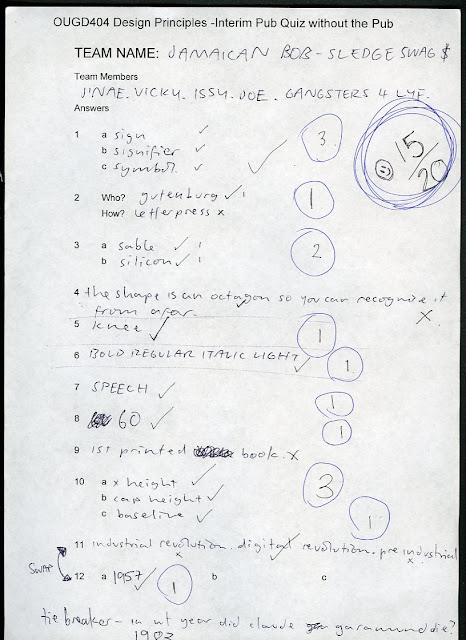 OUGD404 Design Principles -Interim Pub Quiz without the Pub
TEAM NAME: JAMAICAN BOB - SLEDGE SWAG $
Team Members
JINAE. VICKY. ISSY. JOE. GANGSTERS 4 LYF.
Answers
15/20
1 a sign ✓
b signifier ✓
c symbol. ✓
3
2 Who? gutenburg ✓ 1
How? letterpress x
1
3 a sable ✓ 1
b silicon ✓ 1
2
4 the shape is an octagon so you can recognize it
from afar. X
5 knee ✓ 1
6 BOLD REGULAR ITALIC LIGHT ✓ 1
7 SPEECH ✓ 1
8 60 ✓ 1
9 1st printed book. x
10 a x height ✓
b cap height ✓
c baseline ✓
3
1
11 industrial revolution. digital revolution. pre industrial
x ✓ x
SWAP
12 a 1957 ✓ 1 b c
tie breaker - in wt year did claude garamund die?